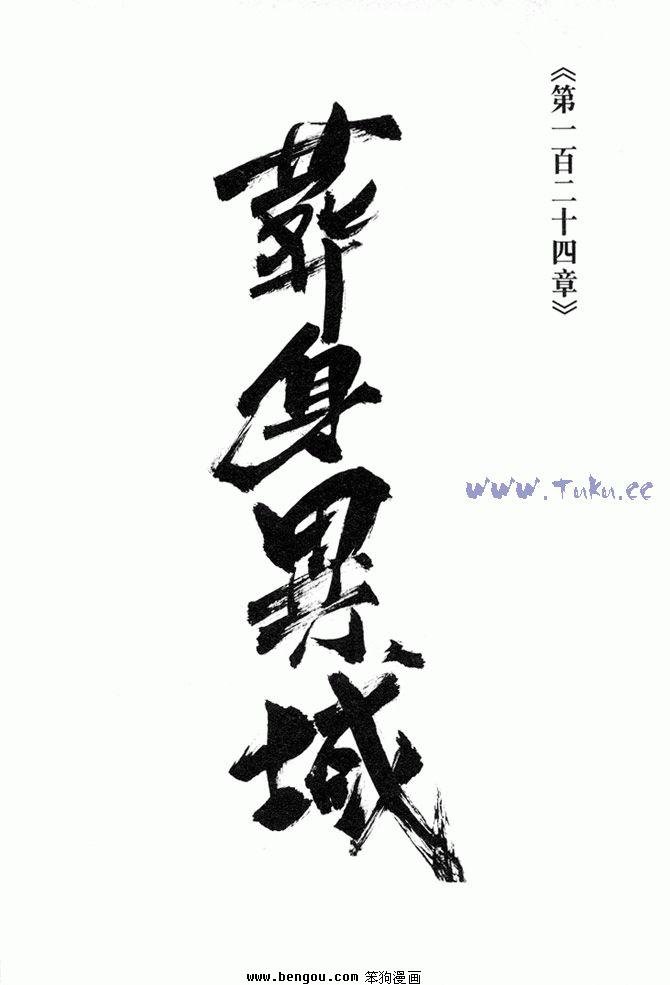 《第一百二十四章》
葬身異域
www.Tuku.cc
www.bengou.com 笨狗漫画